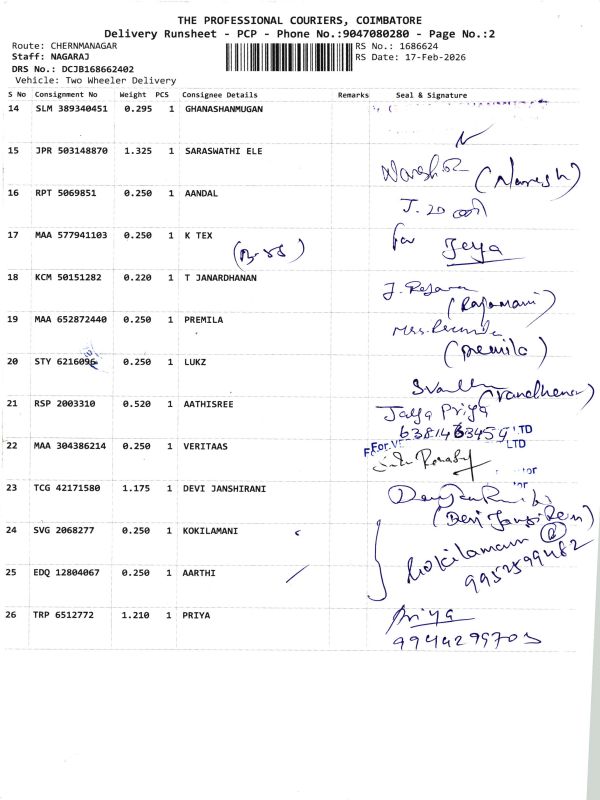 THE PROFESSIONAL COURIERS, COIMBATORE
Delivery Runsheet - PCP - Phone No.:9047080280 - Page No.:2
Route: CHERNMANAGAR
Staff: NAGARAJ
DRS No.: DCJB168662402
Vehicle: Two Wheeler Delivery
RS No.: 1686624
RS Date: 17-Feb-2026
S No Consignment No Weight PCS Consignee Details Remarks Seal & Signature
14 SLM 389340451 0.295 1 GHANASHANMUGAN
15 JPR 503148870 1.325 1 SARASWATHI ELE (Naresh)
16 RPT 5069851 0.250 1 AANDAL
17 MAA 577941103 0.250 1 K TEX for Jeya
18 KCM 50151282 0.220 1 T JANARDHANAN
(Rajamani)
19 MAA 652872440 0.250 1 PREMILA
(premila)
20 STY 6216096 0.250 1 LUKZ
21 RSP 2003310 0.520 1 AATHISREE Jaya Priya
6381463459
22 MAA 304386214 0.250 1 VERITAAS
LTD
23 TCG 42171580 1.175 1 DEVI JANSHIRANI
24 SVG 2068277 0.250 1 KOKILAMANI kokilamani
9952599482
25 EDQ 12804067 0.250 1 AARTHI
26 TRP 6512772 1.210 1 PRIYA Priya
9944299703